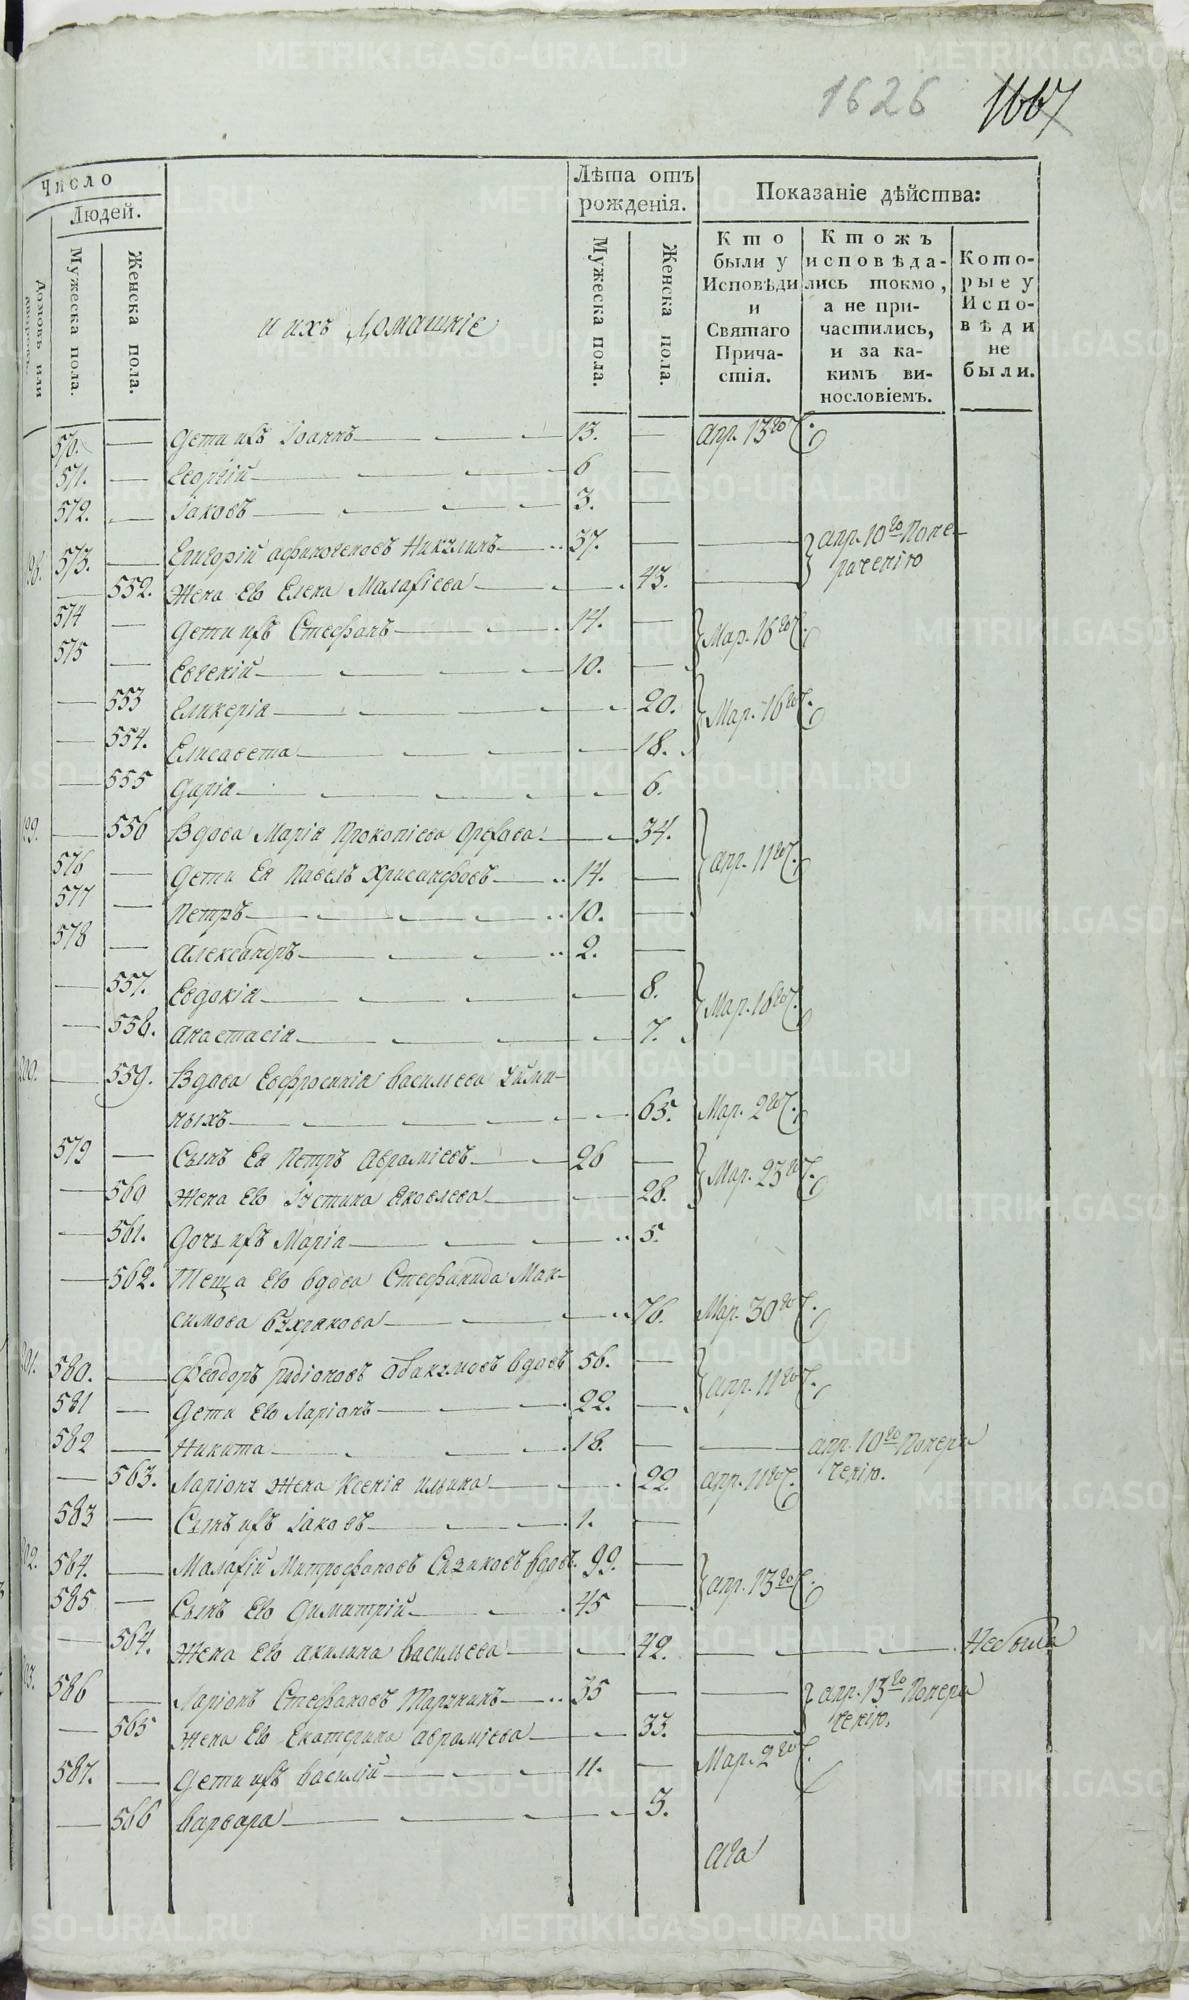 1626 1667
Число
Людей.
Домовъ или
Мужеска пола.
Женска пола.
и ихъ Домашніе
Лѣта отъ
рожденія.
Мужеска пола.
Женска пола.
Показаніе дѣйства:
Кто
были у
Исповѣди
и
Святаго
Прича-
стія.
Ктожъ
исповѣда-
лись токмо,
а не при-
частились,
и за ка-
кимъ ви-
нословіемъ.
Кото-
рые у
Испо-
вѣди
не
были.
570. — Дети ихъ Іоаннъ 13. — апр. 13го
571. — Георгій 6 —
572. — Іаковъ 3. —
573. — Григорій 37. — — апр. 10го
— 552. Жена Его Елена Малафіева — 43. —
574 — Дети ихъ Стефанъ 14. — Мар. 16го
575 — Евгеній 10. —
— 553 Гликерія — 20. Мар. 16го
— 554. Елисавета — 18.
— 555 Дарія — 6.
— 556 Вдова Марія Прокопіева — 34. апр. 11го
576 — Дети Ея Павелъ Хрисанфовъ 14. —
577 — Петръ 10. —
578 — Александръ 2. —
— 557. Евдокія — 8. Мар. 16го
— 558. Анастасія — 7.
— 559. Вдова Евфросинія Васильева
ныхъ — 65. Мар. 2го
579 — Сынъ Ея Петръ Авраміевъ 26 — Мар. 23го
— 560 Жена Его Іустина Яковлева — 28.
— 561. Дочь ихъ Марія — 5.
— 562. Теща Его вдова Стефанида Мак-
симова — 76. Мар. 30го
201. 580. — Феодоръ Родіоновъ вдовъ 56. — апр. 11го
581 — Дети Его Ларіонъ 22. —
582 — Никита 18. — — апр. 10го
— 563. Ларіона Жена Ксенія Ильина — 22. апр. 11го
583 — Сынъ ихъ Іаковъ 1. —
584. — Малафій Митрофановъ вдовъ. 99. — апр. 13го
585 — Сынъ Его Димитрій 45 —
— 564. Жена Его Акилина Васильева — 42. — — Не была
586 — Ларіонъ Стефановъ 35 — — апр. 13го
— 565 Жена Его Екатерина Авраміева — 33. —
587. — Дети ихъ Василій 11. — Мар. 2го
— 566 Варвара — 3.